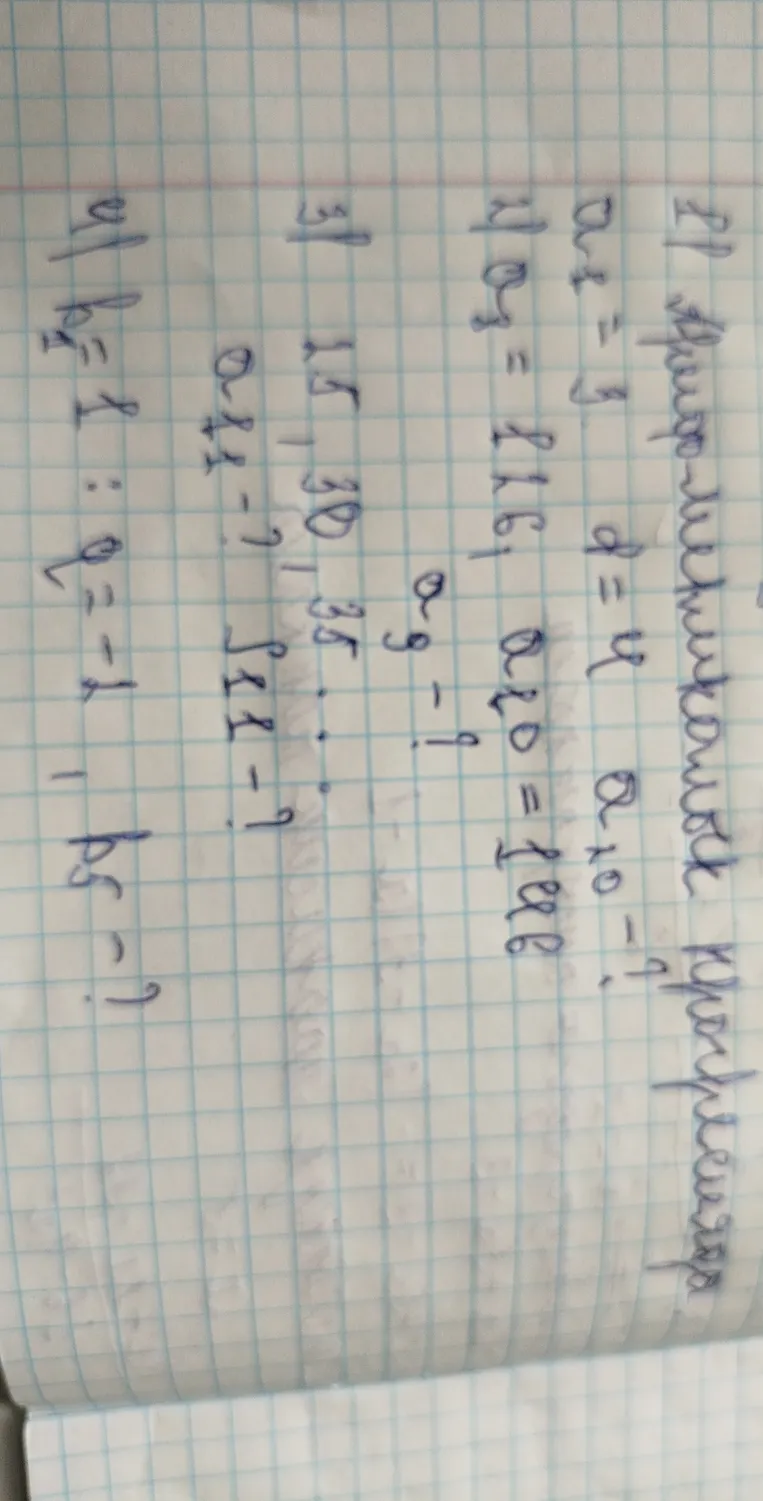 1) Арифметикалық прогрессияда
a₁ = 3 d = 4 a₂₀ - ?
2) a₈ = 126, a₁₀ = 146
a₉ - ?
3) 25, 30, 35 . . .
a₁₁ - ? S₁₁ - ?
4) b₁ = 1 ; q = -2, b₅ - ?